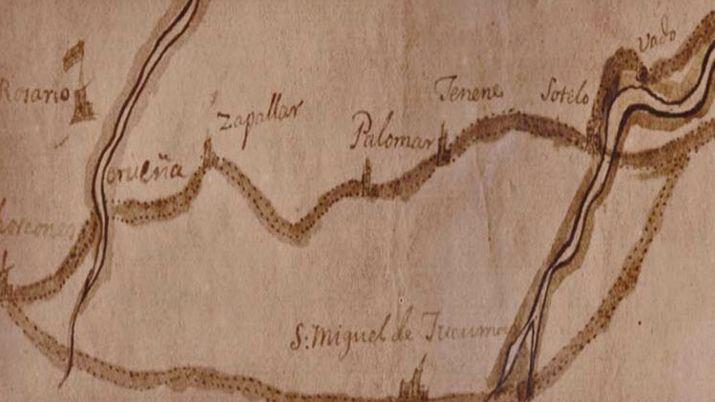 Vado
Rosario
Zapallar
Tenene
Sotelo
Palomar
S. Miguel de Tucuman